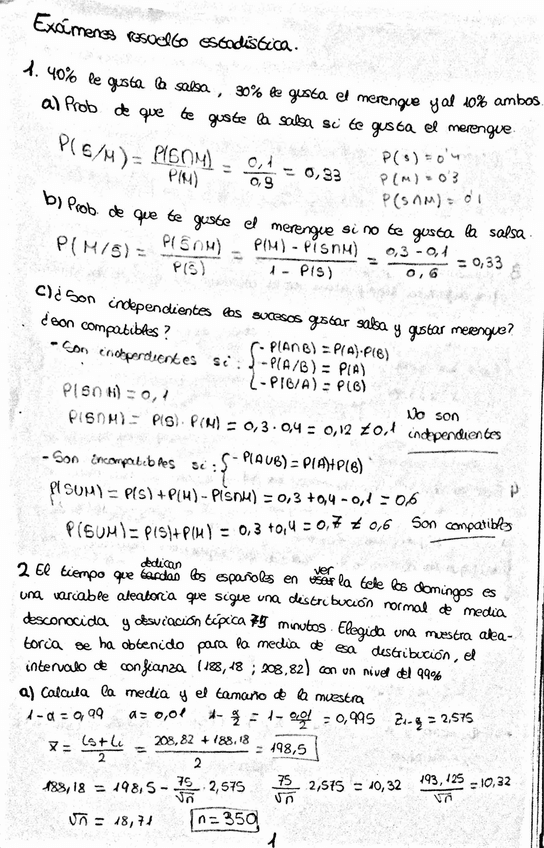 Exámenes resuelto estadística.
1. 40% le gusta la salsa, 30% le gusta el merengue y al 10% ambos.
a) Prob de que te guste la salsa si te gusta el merengue.
P(S/M) = P(S∩M)/P(M) = 0,1/0,3 = 0,33
P(S) = 0'4
P(M) = 0'3
P(S∩M) = 0'1
b) Prob. de que te guste el merengue si no te gusta la salsa.
P(M/S̄) = P(S̄∩M)/P(S̄) = P(M) - P(S∩M)/1 - P(S) = 0,3 - 0,1/0,6 = 0,33
c) ¿Son independientes los sucesos gustar salsa y gustar merengue?
¿son compatibles?
- Son independientes si: { - P(A∩B) = P(A)·P(B)
- P(A/B) = P(A)
- P(B/A) = P(B)
P(S∩M) = 0,1
P(S∩M) = P(S)·P(M) = 0,3 · 0,4 = 0,12 ≠ 0,1 No son independientes
- Son incompatibles si: { - P(A∪B) = P(A)+P(B)
P(S∪M) = P(S) + P(M) - P(S∩M) = 0,3 + 0,4 - 0,1 = 0,6
P(S∪M) = P(S)+P(M) = 0,3 + 0,4 = 0,7 ≠ 0,6 Son compatibles
2 El tiempo que dedican los españoles en ver la tele los domingos es
una variable aleatoria que sigue una distribución normal de media
desconocida y desviación típica 75 minutos. Elegida una muestra alea-
toria se ha obtenido para la media de esa distribución, el
intervalo de confianza (188,18 ; 208,82) con un nivel del 99%
a) Calcula la media y el tamaño de la muestra
1-α = 0,99 α = 0,01 1-α/2 = 1 - 0,01/2 = 0,995 Z1-α/2 = 2,575
x̄ = Ls + Li/2 = 208,82 + 188,18/2 = 198,5
188,18 = 198,5 - 75/√n · 2,575 75/√n · 2,575 = 10,32 193,125/√n = 10,32
√n = 18,71 n = 350
1